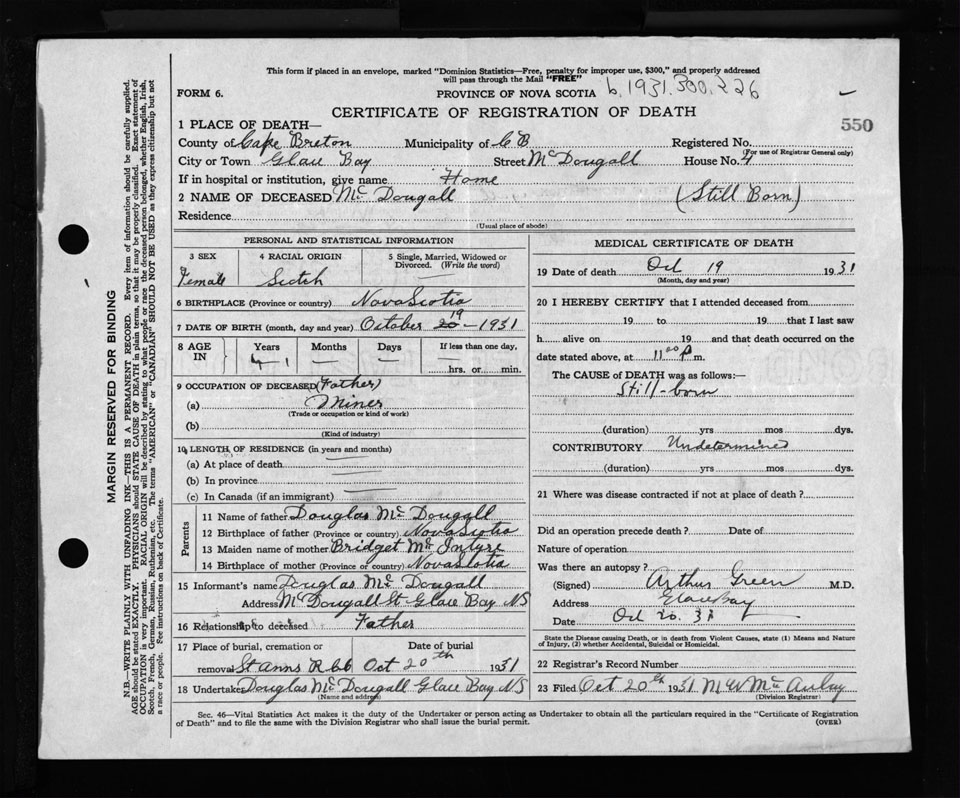 This form if placed in an envelope, marked "Dominion Statistics—Free, penalty for improper use, $300," and properly addressed
will pass through the Mail "FREE"
FORM 6. PROVINCE OF NOVA SCOTIA b.1931.300.226
CERTIFICATE OF REGISTRATION OF DEATH
550
1 PLACE OF DEATH—
County of Cape Breton Municipality of C B Registered No.
(For use of Registrar General only)
City or Town Glace Bay Street McDougall House No. 4
If in hospital or institution, give name Home
2 NAME OF DECEASED Mc Dougall (Still Born)
Residence
(Usual place of abode)
PERSONAL AND STATISTICAL INFORMATION
3 SEX 4 RACIAL ORIGIN 5 Single, Married, Widowed or Divorced. (Write the word)
Female Scotch
6 BIRTHPLACE (Province or country) Nova Scotia
7 DATE OF BIRTH (month, day and year) October 20 19 - 1931
8 AGE IN Years Months Days If less than one day,
hrs. or min.
9 OCCUPATION OF DECEASED (Father)
(a) Miner
(Trade or occupation or kind of work)
(b)
(Kind of industry)
10 LENGTH OF RESIDENCE (in years and months)
(a) At place of death
(b) In province
(c) In Canada (if an immigrant)
Parents
11 Name of father Douglas Mc Dougall
12 Birthplace of father (Province or country) Nova Scotia
13 Maiden name of mother Bridget Mc Intyre
14 Birthplace of mother (Province or country) Nova Scotia
15 Informant's name Douglas Mc Dougall
Address McDougall St Glace Bay NS
16 Relationship to deceased Father
17 Place of burial, cremation or Date of burial
removal St Anns Oct 20th 1931
18 Undertaker Douglas Mc Dougall Glace Bay NS
(Name and address)
MEDICAL CERTIFICATE OF DEATH
19 Date of death Oct 19 1931
(Month, day and year)
20 I HEREBY CERTIFY that I attended deceased from
19 to 19 that I last saw
h alive on 19 and that death occurred on the
date stated above, at 11 00 P m.
The CAUSE of DEATH was as follows:—
Still-born
(duration) yrs mos dys.
CONTRIBUTORY Undetermined
(duration) yrs mos dys.
21 Where was disease contracted if not at place of death?
Did an operation precede death? Date of
Nature of operation
Was there an autopsy?
(Signed) Arthur Green M.D.
Address Glace Bay
Date Oct 20. 31
State the Disease causing Death, or in death from Violent Causes, state (1) Means and Nature
of Injury, (2) whether Accidental, Suicidal or Homicidal.
22 Registrar's Record Number
23 Filed Oct 20th 1931
(Division Registrar)
Sec. 46—Vital Statistics Act makes it the duty of the Undertaker or person acting as Undertaker to obtain all the particulars required in the "Certificate of Registration
of Death" and to file the same with the Division Registrar who shall issue the burial permit. (OVER)
MARGIN RESERVED FOR BINDING
N.B.—WRITE PLAINLY WITH UNFADING INK—THIS IS A PERMANENT RECORD. Every item of information should be carefully supplied.
AGE should be stated EXACTLY. PHYSICIANS should STATE CAUSE OF DEATH in plain terms, so that it may be properly classified. Exact statement of
OCCUPATION is very important. RACIAL ORIGIN will be described by stating to what people or race the deceased person belonged, whether English, Irish,
Scotch, French, German, Russian, Ruthenian, etc. The terms "AMERICAN" or "CANADIAN" SHOULD NOT BE USED as they express citizenship but not
a race or people. See instructions on back of Certificate.